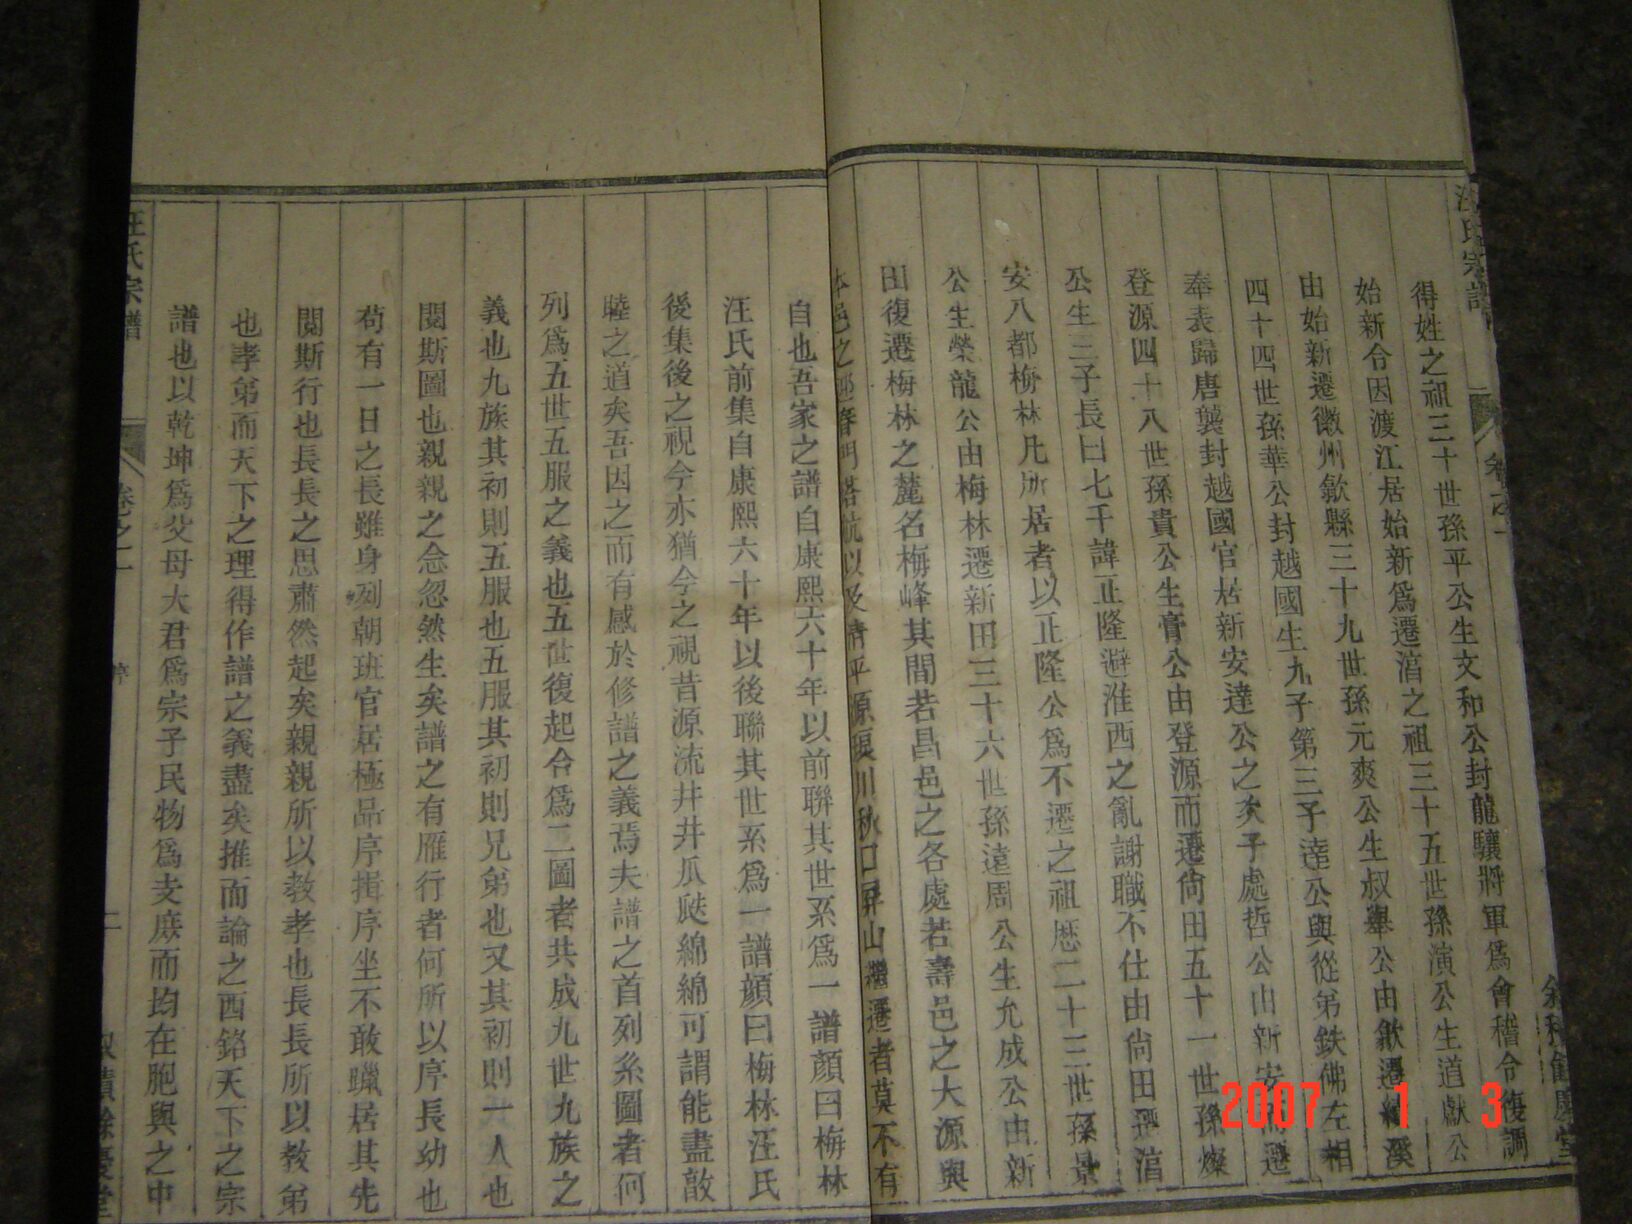 汪氏宗譜
卷之一
叙積餘慶堂
得姓之祖三十世孫平公生文和公封龍驤將軍爲會稽令復調
始新令因渡江居始新爲遷渻之祖三十五世孫演公生道獻公
由始新遷徽州歙縣三十九世孫元爽公生叔舉公由歙遷績溪
四十四世孫華公封越國生九子第三子達公與從弟鉄佛左相
奉表歸唐襲封越國官居新安達公之矦子處哲公由新安 遷
登源四十八世孫貴公生膏公由登源而遷尙田五十一世孫燦
公生三子長曰七千諱正隆避淮西之亂謝職不仕由尙田遷渻
安八都梅林凡所居者以正隆公爲不遷之祖歷二十三世孫景
公生榮龍公由梅林遷新田三十六世孫遠周公生允成公由新
田復遷梅林之麓名梅峰其間若昌邑之各處若壽邑之大源與
本邑之 春門 坑以及清平源 川秋口屏山 遷者莫不有
自也吾家之譜自康熙六十年以前聯其世系爲一譜顏曰梅林
汪氏前集自康熙六十年以後聯其世系爲一譜顏曰梅林汪氏
後集後之視今亦猶今之視昔源流井井瓜瓞綿綿可謂能盡敦
睦之道矣吾因之而有感於修譜之義焉夫譜之首列系圖者何
列爲五世五服之義也五世復起合爲二圖者共成九世九族之
義也九族其初則五服也五服其初則兄弟也又其初則一人也
閱斯圖也親親之念忽然生矣譜之有雁行者何所以序長幼也
苟有一日之長雖身列朝班官居極品序揖序坐不敢躐居其先
閱斯行也長長之思肅然起矣親親所以教孝也長長所以教弟
也孝弟而天下之理得作譜之義盡矣推而論之西銘天下之宗
譜也以乾坤爲父母大君爲宗子民物爲支庶而均在胞與之中
汪氏宗譜
卷之一
二
叙積餘慶堂
2007 1 3